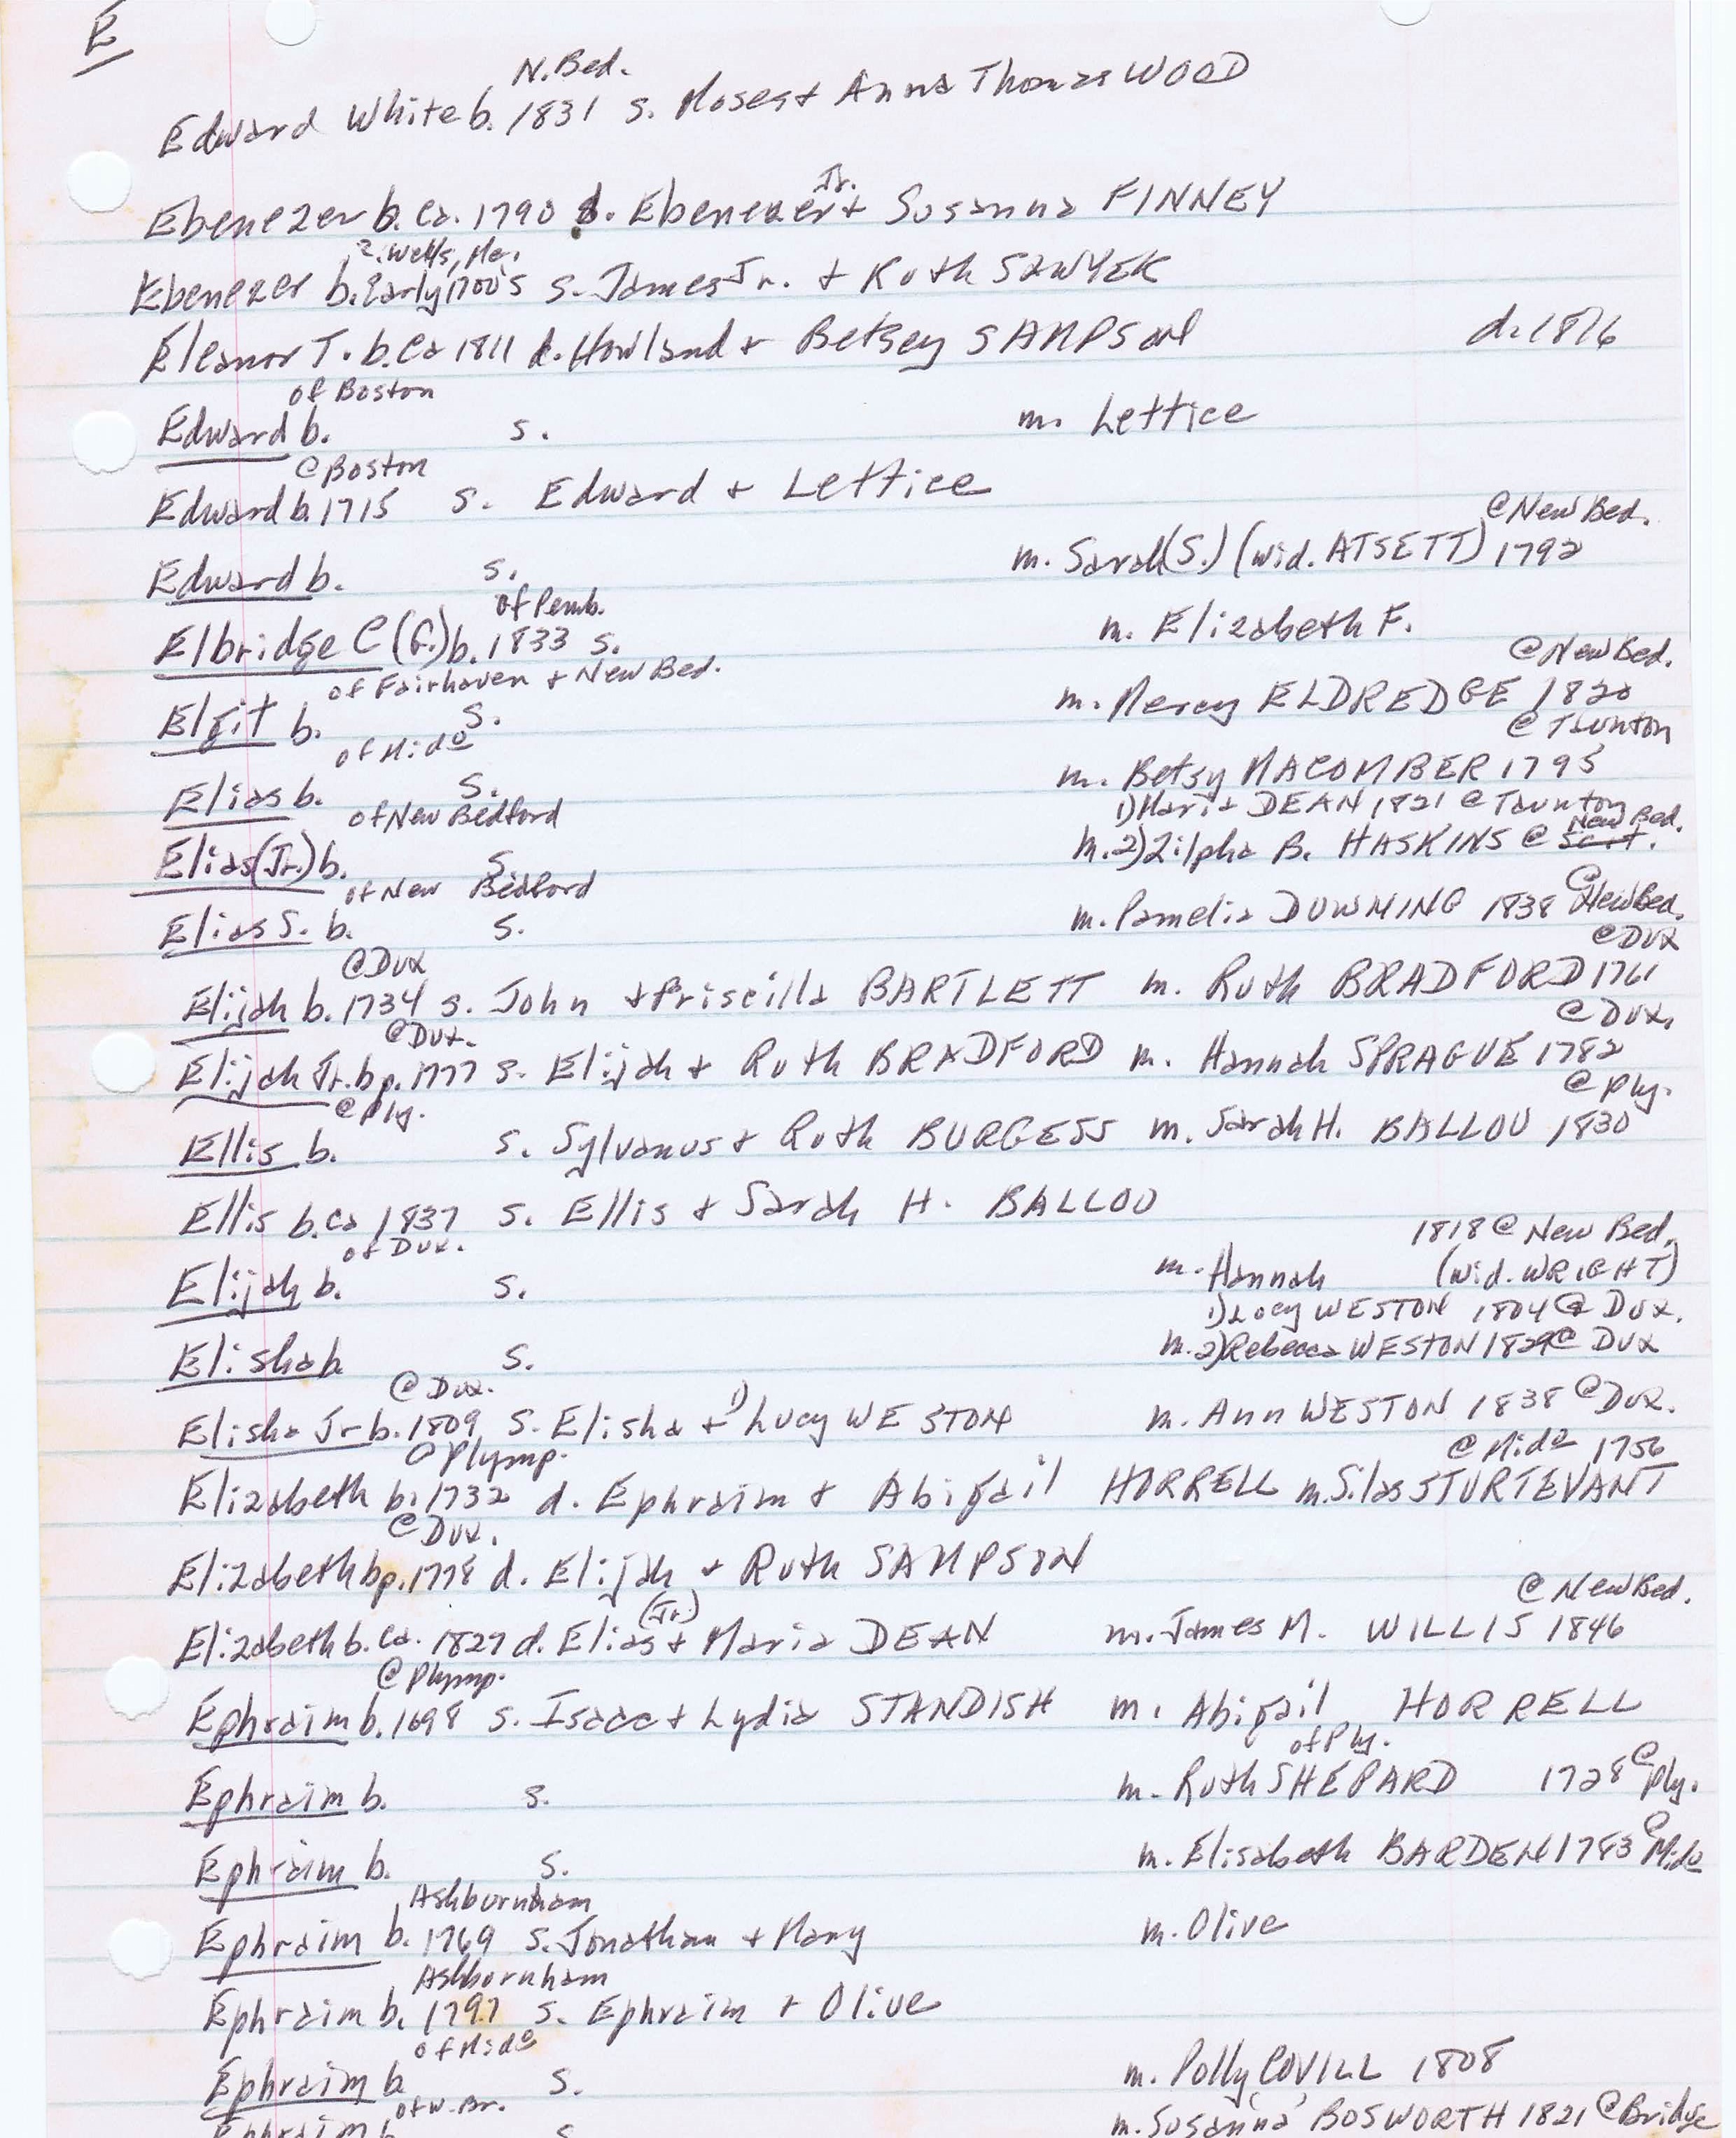 E
N. Bed.
Edward White b. 1831 s. Moses + Anna Thomas WOOD
Jr.
Ebenezer b. ca. 1790 s. Ebenezer + Susanna FINNEY
?. Wells, Me.
Ebenezer b. Early 1700's s. James Jr. + Ruth SAWYER
Eleanor T. b. Ca 1811 d. Howland + Betsey SAMPSON d. 1816
of Boston
Edward b. s. m. Lettice
@ Boston
Edward b. 1715 s. Edward + Lettice
@ New Bed.
Edward b. s. m. Sarah (S.) (wid. ATSETT) 1792
of Pemb.
Elbridge C (G.) b. 1833 s. m. Elizabeth F.
of Fairhaven + New Bed. @ New Bed.
Elgit b. s. m. Mercy ELDREDGE 1820
of Mido @ Taunton
Elias b. s. m. Betsy MACOMBER 1795
of New Bedford 1) Maria DEAN 1821 @ Taunton
New Bed.
Elias (Jr.) b. s. m. 2) Zilpha B. HASKINS @
of New Bedford
Elias S. b. s. m. Pamelia DOWNING 1838 @ New Bed.
@ Dux @ Dux
Elijah b. 1734 s. John + Priscilla BARTLETT m. Ruth BRADFORD 1761
@ Dux. @ Dux.
Elijah Jr. bp. 1777 s. Elijah + Ruth BRADFORD m. Hannah SPRAGUE 1782
@ Ply. @ Ply.
Ellis b. s. Sylvanus + Ruth BURGESS m. Sarah H. BALLOU 1830
Ellis b. ca 1837 s. Ellis + Sarah H. BALLOU
of Dux. 1818 @ New Bed.
Elijah b. s. m. Hannah (wid. WRIGHT)
1) Lucy WESTON 1804 @ Dux.
Elisha b. s. m. 2) Rebecca WESTON 1829 @ Dux
@ Dux. 1)
Elisha Jr b. 1809 s. Elisha + Lucy WESTON m. Ann WESTON 1838 @ Dux.
@ Plymp. @ Mido 1756
Elizabeth b. 1732 d. Ephraim + Abigail HORRELL m. Silas STURTEVANT
@ Dux.
Elizabeth bp. 1778 d. Elijah + Ruth SAMPSON
(Jr.) @ New Bed.
Elizabeth b. ca. 1827 d. Elias + Maria DEAN m. James M. WILLIS 1846
@ Plymp.
Ephraim b. 1698 s. Isaac + Lydia STANDISH m. Abigail HORRELL
of Ply.
Ephraim b. s. m. Ruth SHEPARD 1728 @ Ply.
Ephraim b. s. m. Elisabeth BARDEN 1783 @ Mido
Ashburnham
Ephraim b. 1769 s. Jonathan + Mary m. Olive
Ashburnham
Ephraim b. 1797 s. Ephraim + Olive
of Mido
Ephraim b s. m. Polly COVILL 1808
of W. Br.
Ephraim b. s m. Susanna BOSWORTH 1821 @ Bridge